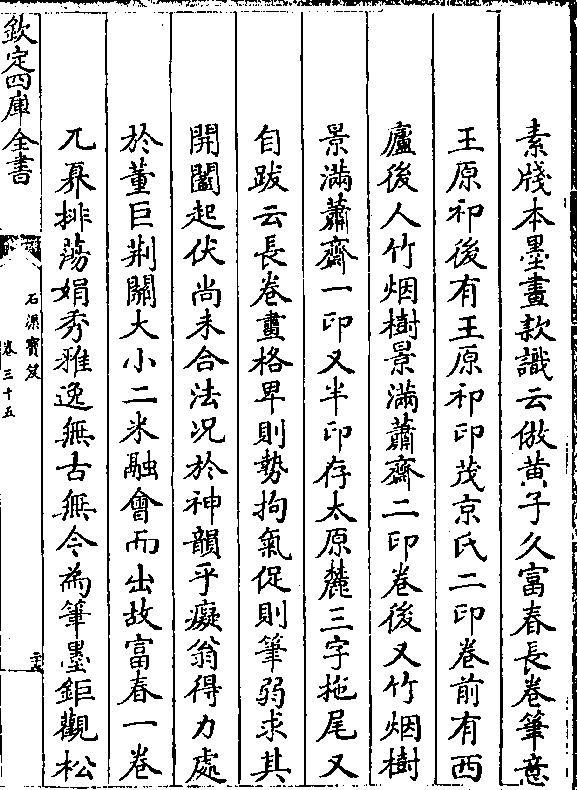 素牋本墨畫款識云倣黄子久富春長卷筆意
王原祁後有王原祁印茂京氏二印卷前有西
廬後人竹烟樹景滿蕭齋二印卷後又竹烟樹
景滿蕭齋一印又半印存太原麓三字拖尾又
自跋云長卷畫格卑則勢拘氣促則筆弱求其
開闔起伏尚未合法况於神韻乎癡翁得力處
於董巨荆關大小二米融會而出故富春一卷
兀奡排蕩娟秀雅逸無古無今為筆墨鉅觀松
欽定四庫全書
石渠寳笈
卷三十五